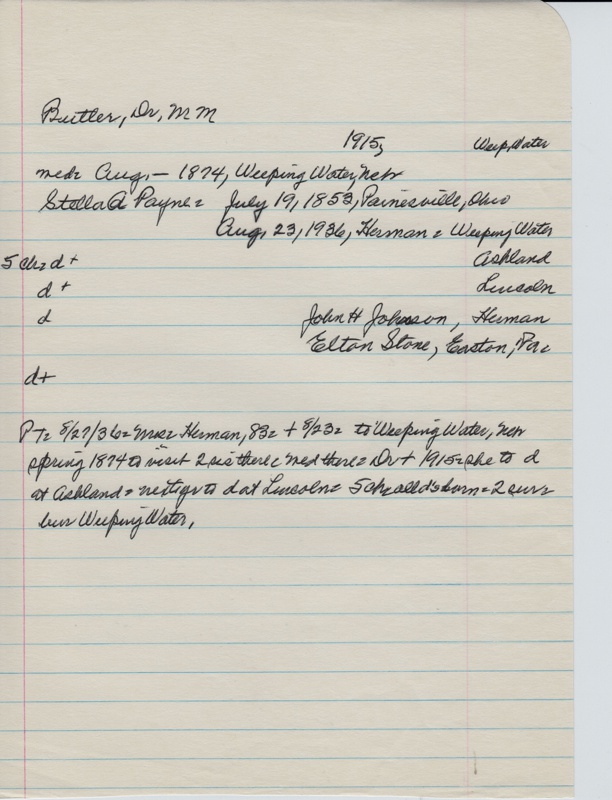 Butler, Dr, M M
1915, Weep, Water
med= Aug, — 1874, Weeping Water, Nebr
Stella A Payne= July 19, 1853, Painesville, Ohio
Aug, 23, 1936, Herman = Weeping Water
5 ch= d + Ashland
d + Lincoln
d John H Johnson, Herman
Elton Stone, Easton, Pa
d+
PT= 8/27/36= Mrs= Herman, 83= + 8/23= to Weeping Water, Nebr
spring 1874 to visit 2 sis there = med there= Dr + 1915= she to d
at Ashland= to d at Lincoln= 5 ch= all d's born= 2 sur=
bur Weeping Water,